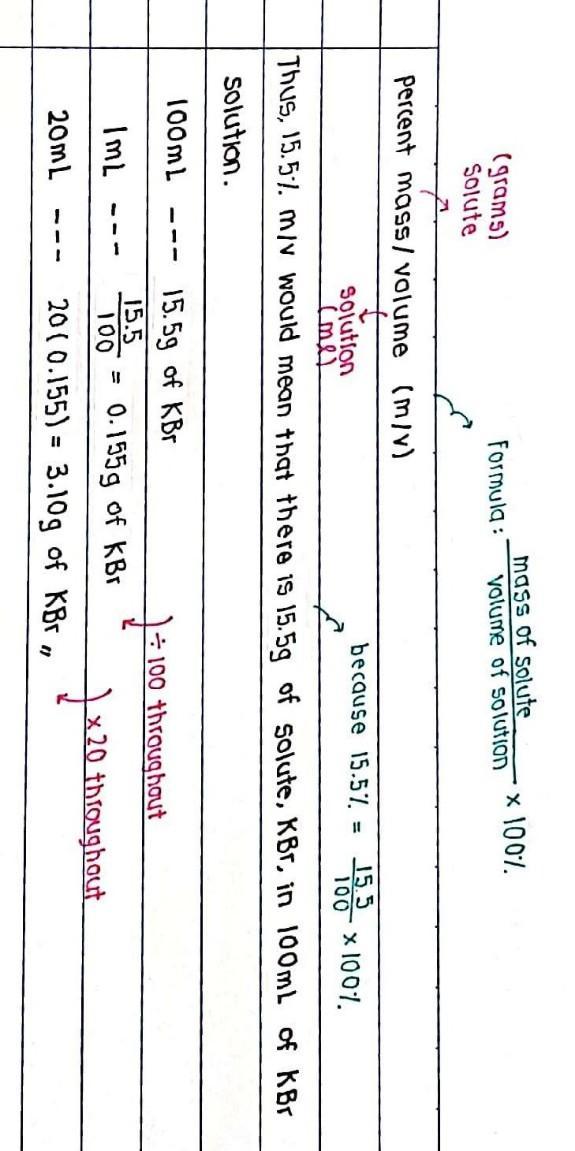 Formula : mass of solute / volume of solution × 100%.
(grams)
solute
percent mass/volume (m/v)
solution
(ml)
because 15.5% = 15.5/100 × 100%.
Thus, 15.5% m/v would mean that there is 15.5g of solute, KBr, in 100mL of KBr
solution.
100mL --- 15.5g of KBr
÷ 100 throughout
1mL --- 15.5/100 = 0.155g of KBr
× 20 throughout
20mL --- 20(0.155) = 3.10g of KBr,,